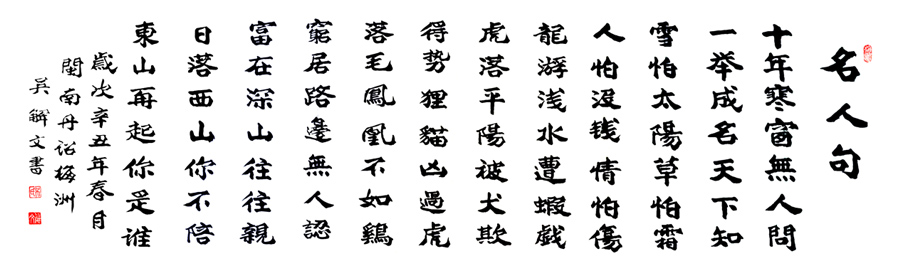 名人句
十年寒窗無人問
一举成名天下知
雪怕太陽草怕霜
人怕没钱情怕傷
龍游浅水遭蝦戲
虎落平陽被犬欺
得势狸貓凶過虎
落毛鳳凰不如鷄
窮居路邊無人認
富在深山往往親
日落西山你不陪
東山再起你是谁
歲次辛丑年春月
閩南丹诏梅洲
吴解文書